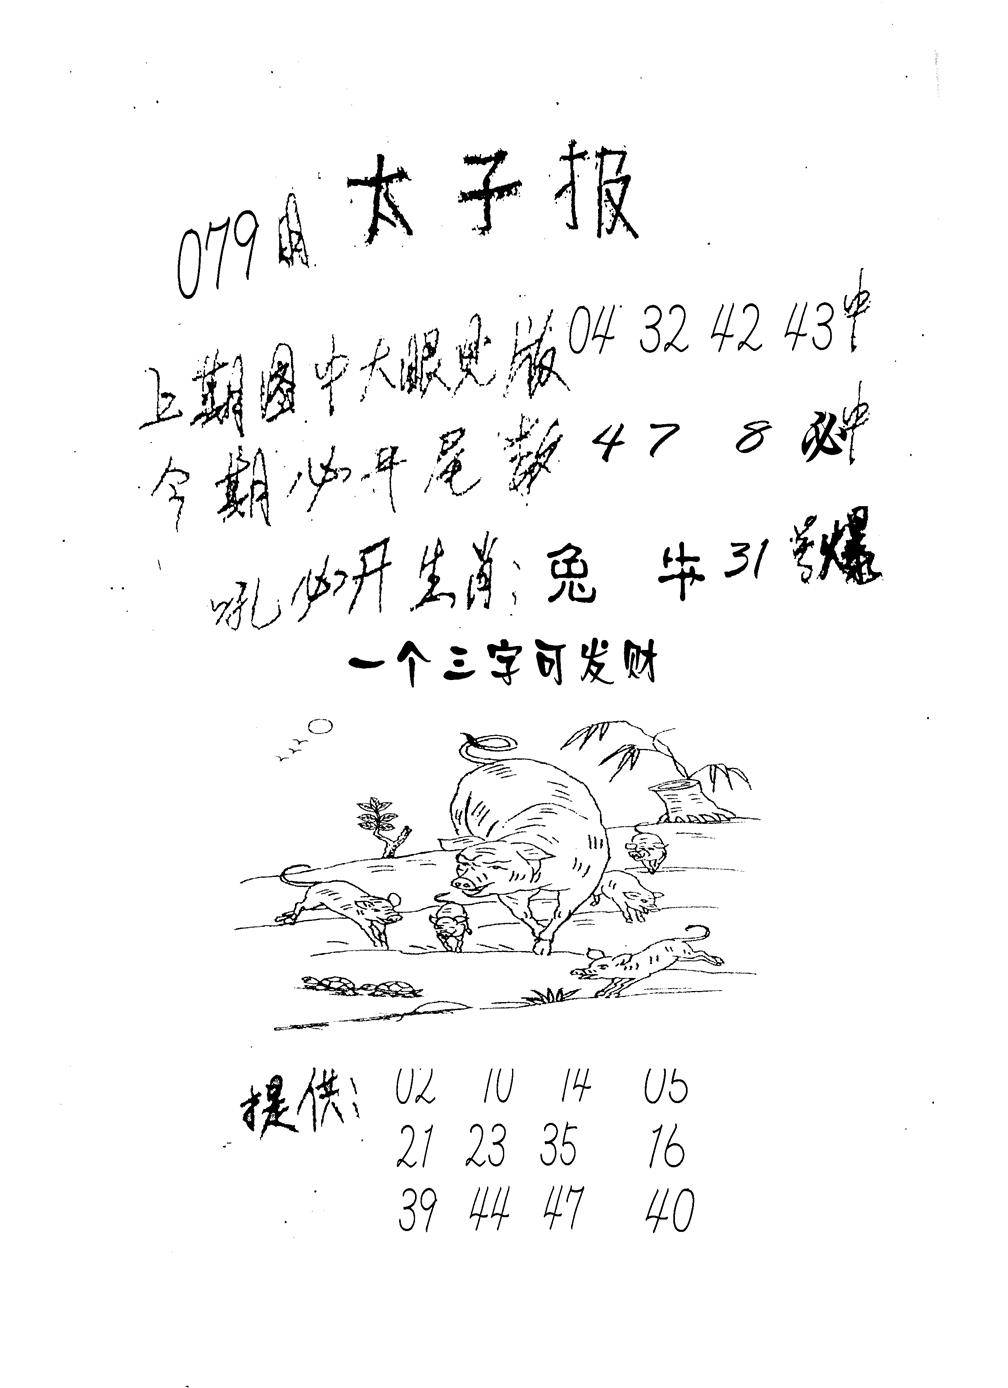 太子报
079期
上期图中大眼见版04 32 42 43中
今期必开尾数 4 7 8 必中
吼必开生肖：兔 牛 31 号爆
一个三字可发财
提供： 02 10 14 05
21 23 35 16
39 44 47 40